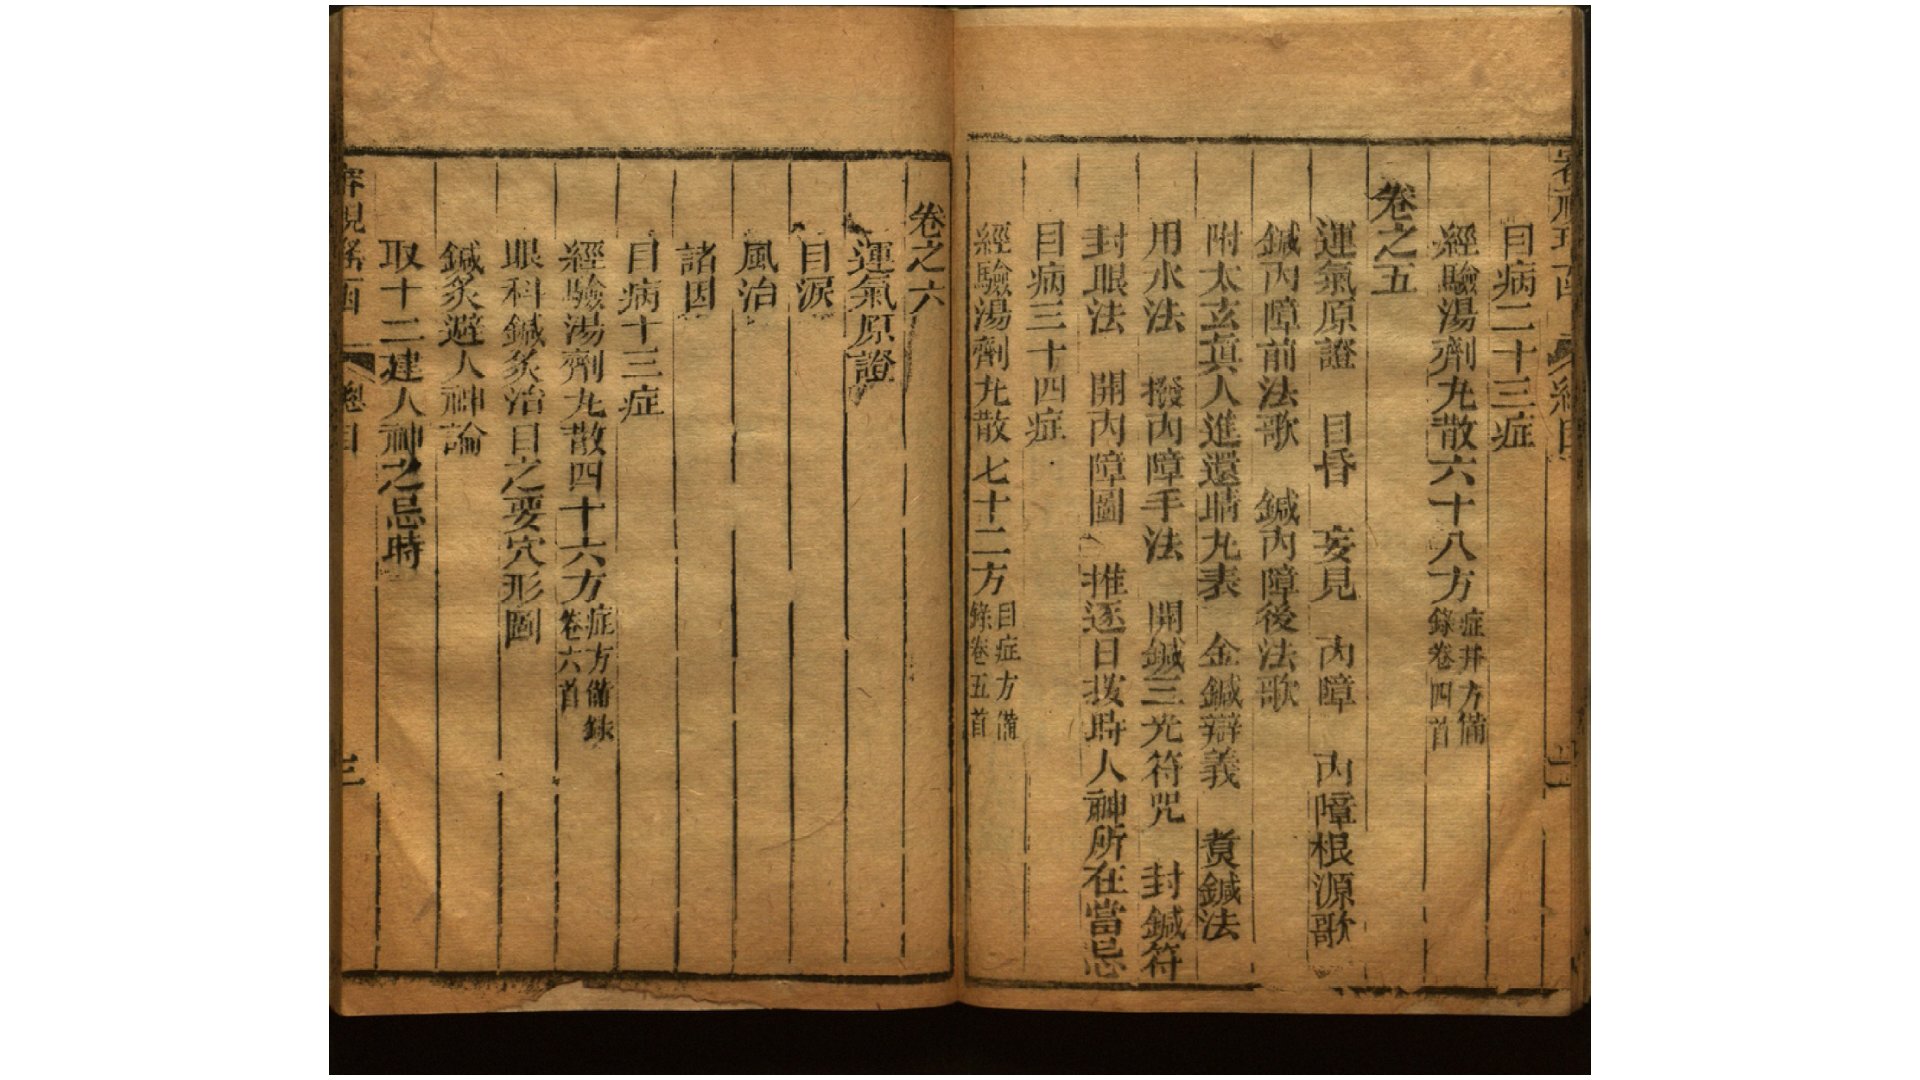 目病二十三症
經驗湯劑丸散六十八方 症并方備錄卷四首
卷之五
運氣原證 目昏 妄見 內障 內障根源歌
鍼內障前法歌 鍼內障後法歌
附太玄真人進還睛丸表 金鍼辯義 煑鍼法
用水法 撥內障手法 開鍼三光符咒 封鍼符
封眼法 開內障圖 推逐日按時人神所在當忌
目病三十四症
經驗湯劑丸散七十二方 目症方備錄卷五首
卷之六
運氣原證
目淚
風治
諸因
目病十三症
經驗湯劑丸散四十六方 症方備錄卷六首
眼科鍼灸治目之要穴形圖
鍼灸避人神論
取十二建人神之忌時
審視瑤函 總目 三